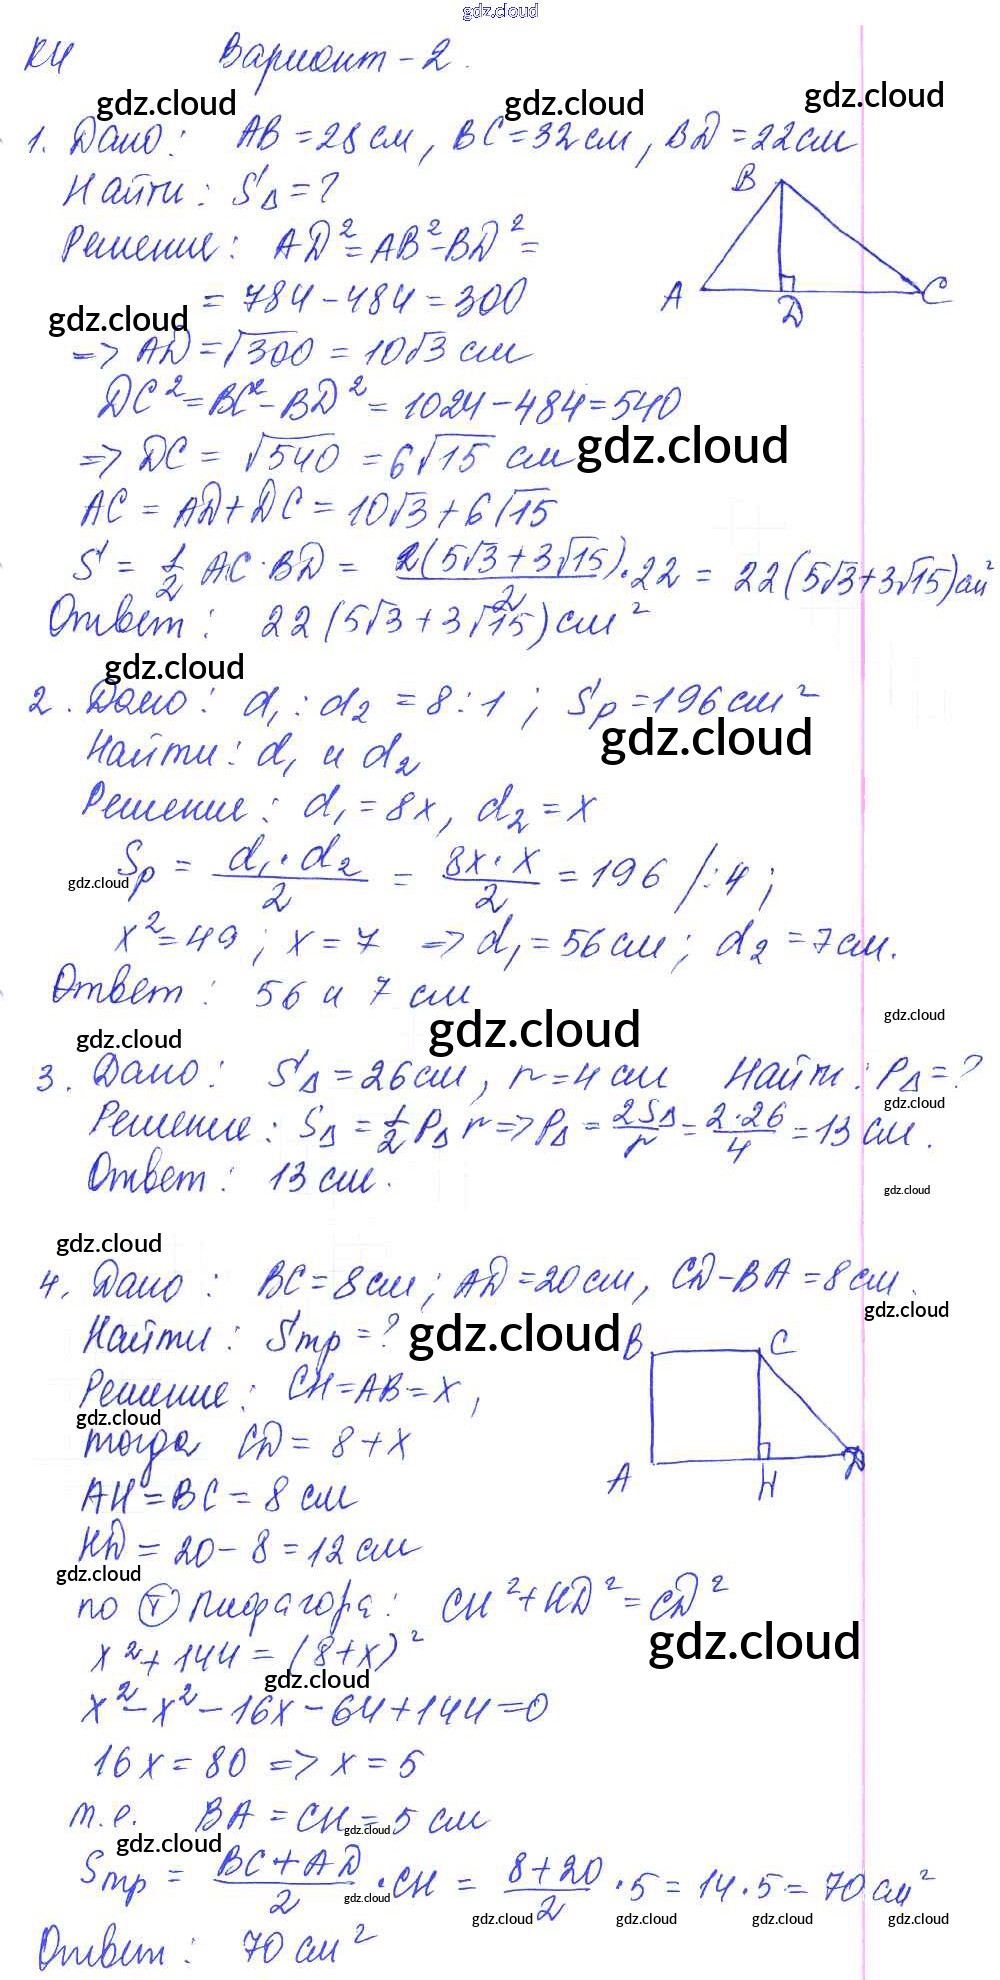 gdz.cloud
К4 Вариант - 2.
gdz.cloud gdz.cloud gdz.cloud
1. Дано: AB = 28 см, BC = 32 см, BD = 22 см
Найти: S△ = ?
B
Решение: AD² = AB² - BD² =
= 784 - 484 = 300
A D C
gdz.cloud
=> AD = √300 = 10√3 см
DC² = BC² - BD² = 1024 - 484 = 540
=> DC = √540 = 6√15 см
gdz.cloud
AC = AD + DC = 10√3 + 6√15
S = 1/2 AC · BD = 2(5√3 + 3√15)/2 · 22 = 22(5√3 + 3√15) см²
Ответ: 22(5√3 + 3√15) см²
gdz.cloud
2. Дано: d₁ : d₂ = 8 : 1; Sр = 196 см²
gdz.cloud
Найти: d₁ и d₂
Решение: d₁ = 8x, d₂ = x
Sр = d₁ · d₂/2 = 8x · x/2 = 196 /: 4;
gdz.cloud
x² = 49; x = 7 => d₁ = 56 см; d₂ = 7 см.
Ответ: 56 и 7 см
gdz.cloud gdz.cloud gdz.cloud
3. Дано: S△ = 26 см, r = 4 см Найти: P△ = ?
gdz.cloud
Решение: S△ = 1/2 P△ r => P△ = 2S△/r = 2·26/4 = 13 см.
Ответ: 13 см.
gdz.cloud
gdz.cloud
4. Дано: BC = 8 см; AD = 20 см, CD - BA = 8 см.
gdz.cloud
Найти: Sтр = ?
gdz.cloud
B C
Решение: CH = AB = x,
gdz.cloud
тогда CD = 8 + x
A H D
AH = BC = 8 см
HD = 20 - 8 = 12 см
gdz.cloud
по Т Пифагора: CH² + HD² = CD²
gdz.cloud
x² + 144 = (8+x)²
gdz.cloud
x² - x² - 16x - 64 + 144 = 0
16x = 80 => x = 5
т.е. BA = CH = 5 см
gdz.cloud
gdz.cloud
Sтр = BC + AD/2 · CH = 8 + 20/2 · 5 = 14 · 5 = 70 см²
gdz.cloud
gdz.cloud gdz.cloud gdz.cloud gdz.cloud
Ответ: 70 см²